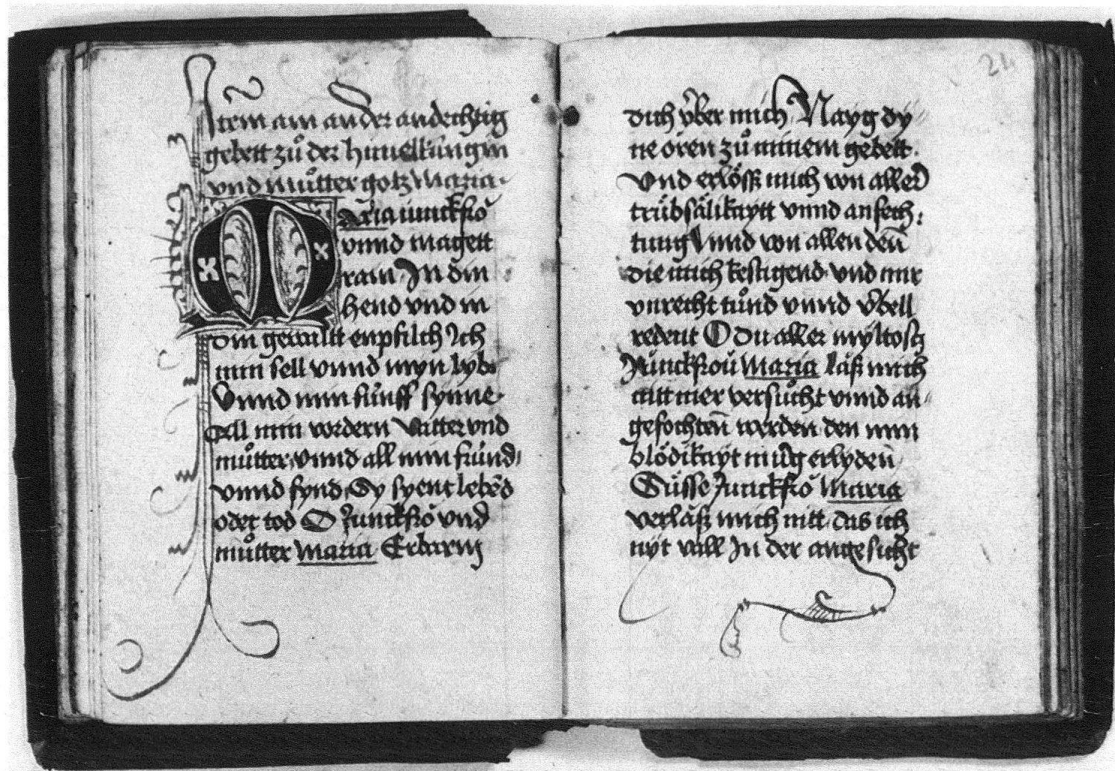 Item ain ander andechtig
gebett zů der himelkungin
vnd můtter gotz Maria
Maria iunckfrŏ
vnnd magett
rain In din
Hend vnd in
din gewallt enpfilch Ich
min sell vnnd myn lyb
Vnnd min fünff synne
All min vordern Vatter vnd
můtter vnnd all min fründ
vnnd fynd Sy syent lebēd
oder tod O Junckfrŏ vnd
můtter Maria Erbarm
24
dich v̈ber mich Nayg dy
ne oren zů minem gebett
Vnd erlöss mich von aller
trübsälikaytt vnnd anfech:
tung Vnnd von allen den̄
die mich kestigend vnd mir
vnrecht tůnd vnnd v̈bell
redent O du aller myltosty
Junckfroŭ Maria laß mich
nitt mer versůcht vnnd an
gefochten̄ werden den min
blödikayt mŭg erlyden̄
Süsse Junckfrŏ Maria
verlăß mich nitt das ich
nyt vall In der angesicht